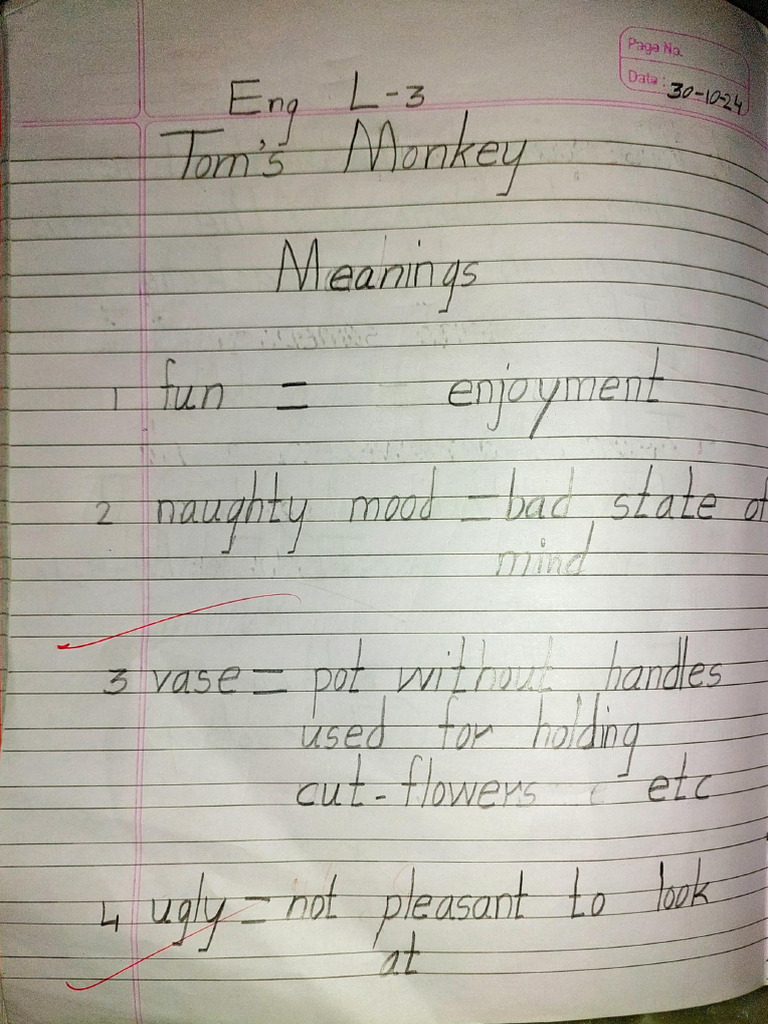 Page No.
Date: 30-10-24
Eng L-3
Tom's Monkey
Meanings
1 fun = enjoyment
2 naughty mood = bad state of
mind
3 vase = pot without handles
used for holding
cut-flowers etc
4 ugly = not pleasant to look
at